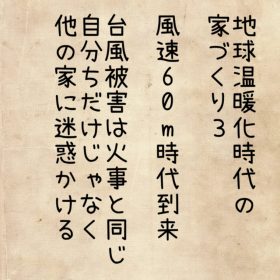 地球温暖化時代の
家づくり3
風速60m時代到来
台風被害は火事と同じ
自分ちだけじゃなく
他の家に迷惑かける